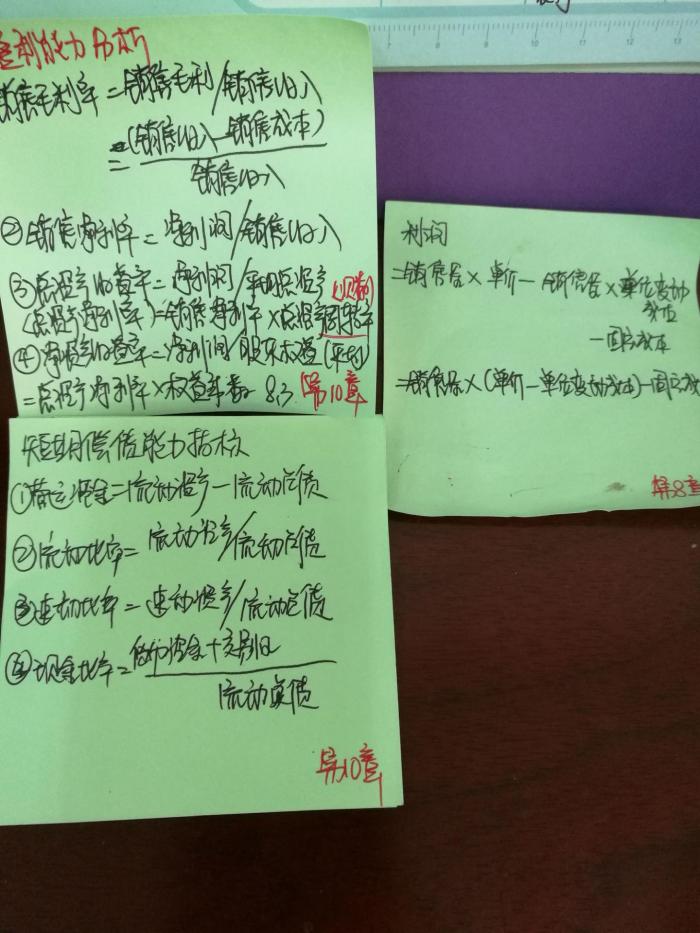 盈利能力分析
销售毛利率=销售毛利/销售收入
=(销售收入-销售成本)
销售收入
②销售净利率=净利润/销售收入
③总资产收益率=净利润/平均总资产
(总资产净利率)=销售净利率×总资产周转率
④净资产收益率=净利润/股东权益(平均)
=总资产净利率×权益乘数
第10章
利润
=销售量×单价-销售量×单位变动
成本
-固定成本
=销售量×(单价-单位变动成本)-固定成
第8章
短期偿债能力指标
①营运资金=流动资产-流动负债
②流动比率=流动资产/流动负债
③速动比率=速动资产/流动负债
④现金比率=货币资金+交易
流动负债
第10章
7 8 9 10 11 12 13